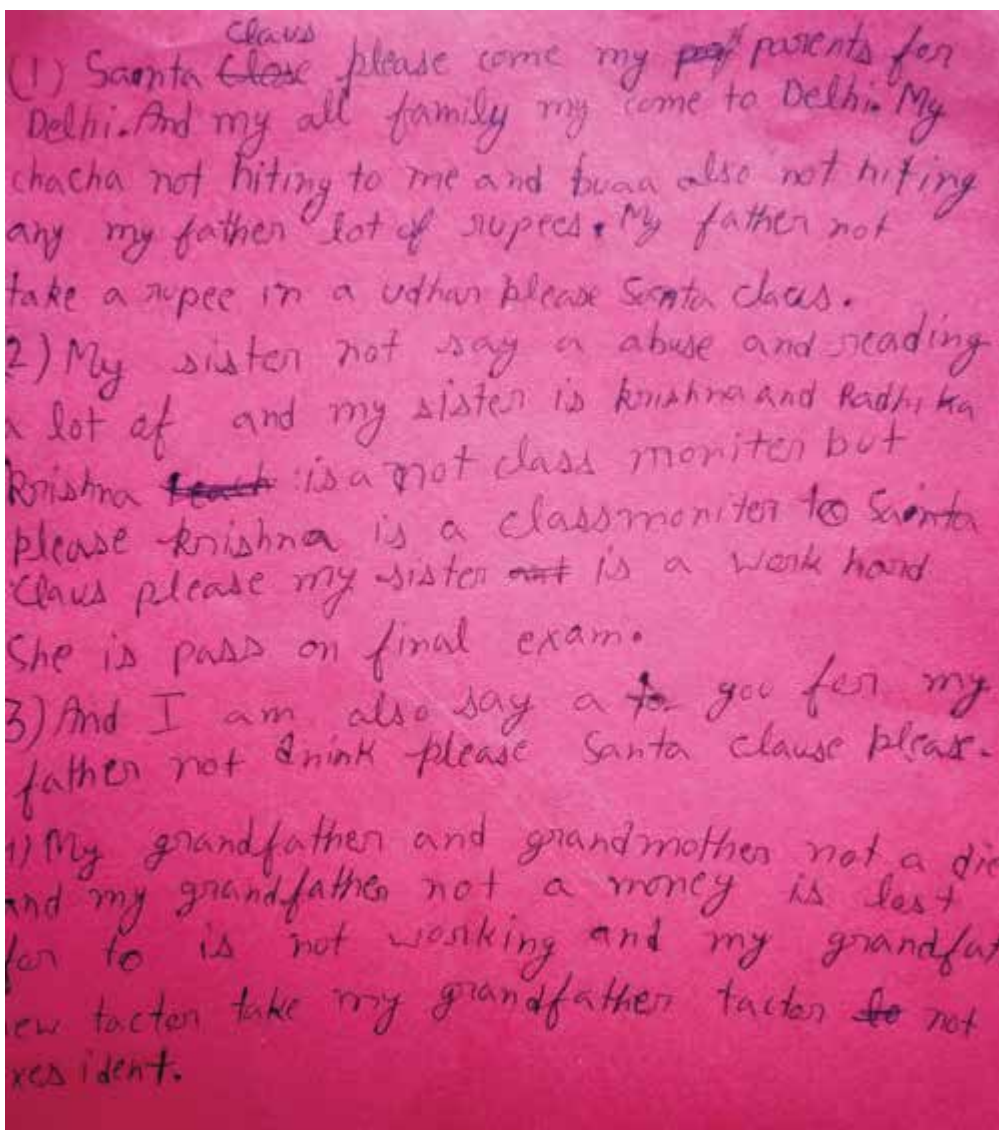 Claus
(1) Saonta Close please come my parents for
Delhi. And my all family my come to Delhi. My
chacha not hiting to me and buaa also not hiting
any my father lot of rupees. My father not
take a rupee in a udhar please Santa claus.
2) My sister not say a abuse and reading
a lot of and my sister is krishna and Radhika
Krishna is a not class moniter but
please krishna is a classmoniter to Saonta
Claus please my sister is a work hard
She is pass on final exam.
3) And I am also say a you for my
father not drink please Santa clause please.
4) My grandfather and grandmother not a die
and my grandfather not a money is lost
for to is not working and my grandfat
ew tacter take my grandfather tacter not
xesident.